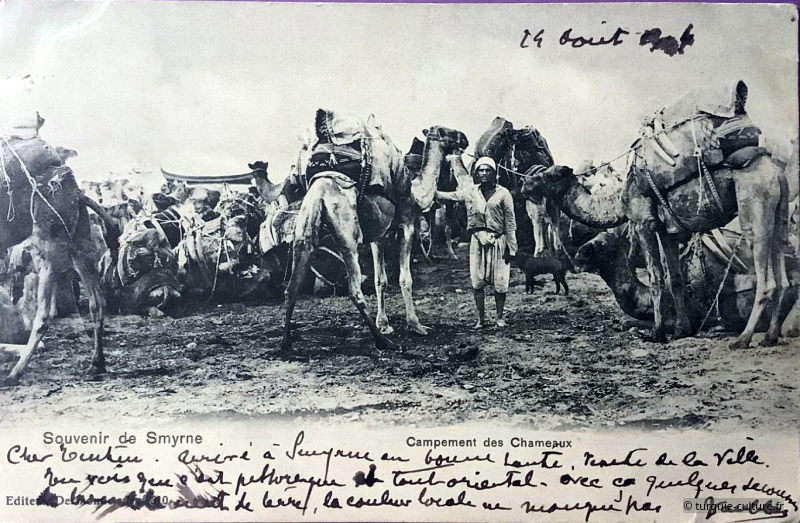 24 Août
Souvenir de Smyrne
Campement des Chameaux
Cher arrivé à Smyrne en bonne santé, visite de la Ville.
Tu vois que c'est pittoresque et tout oriental. avec ça quelques
de terre, la couleur locale ne manque pas
Editeur
© turquie-culture.fr